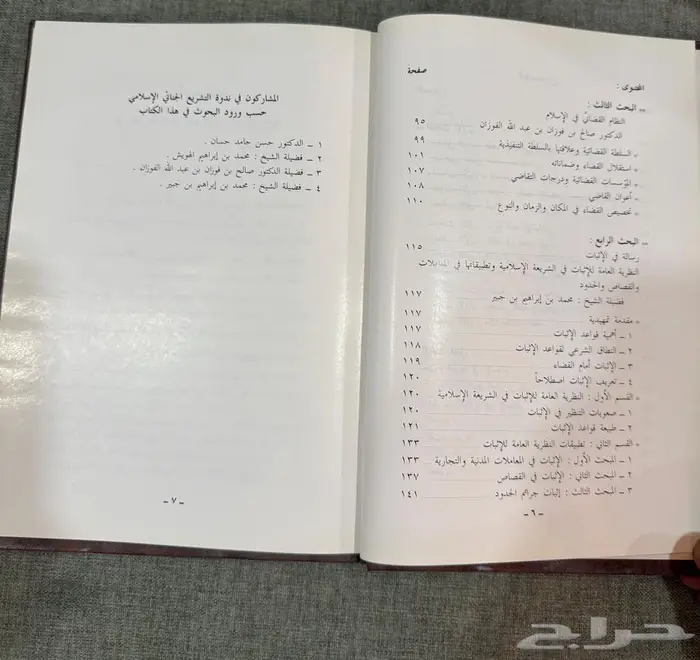 المحتوى :
صفحة
ــ البحث الثالث :
النظام القضائي في الإسلام
الدكتور صالح بن فوزان بن عبد الله الفوزان ٩٥
* السلطة القضائية وعلاقتها بالسلطة التنفيذية ٩٩
* استقلال القضاء وضماناته ١٠١
* المؤسسات القضائية ودرجات التقاضي ١٠٧
* أعوان القاضي ١٠٨
* تخصيص القضاء في المكان والزمان والنوع ١١٠
ــ البحث الرابع :
رسالة في الإثبات ١١٥
النظرية العامة للإثبات في الشريعة الإسلامية وتطبيقاتها في المعاملات
والقصاص والحدود
فضيلة الشيخ : محمد بن إبراهيم بن جبير ١١٧
* مقدمة تمهيدية ١١٧
١ ــ أهمية قواعد الإثبات ١١٧
٢ ــ النطاق الشرعي لقواعد الإثبات ١١٨
٣ ــ الإثبات أمام القضاء ١١٩
٤ ــ تعريف الإثبات اصطلاحاً ١٢٠
* القسم الأول : النظرية العامة للإثبات في الشريعة الإسلامية ١٢٠
١ ــ صعوبات التنظير في الإثبات ١٢٠
٢ ــ طبيعة قواعد الإثبات ١٢١
* القسم الثاني : تطبيقات النظرية العامة للإثبات ١٣٣
١ ــ المبحث الأول : الإثبات في المعاملات المدنية والتجارية ١٣٣
٢ ــ المبحث الثاني : الإثبات في القصاص ١٣٧
٣ ــ المبحث الثالث : إثبات جرائم الحدود ١٤١
ــ ٦ ــ
المشاركون في ندوة التشريع الجنائي الإسلامي
حسب ورود البحوث في هذا الكتاب
١ ــ الدكتور حسن حامد حسان .
٢ ــ فضيلة الشيخ : محمد بن إبراهيم الهويش .
٣ ــ فضيلة الدكتور صالح بن فوزان بن عبد الله الفوزان .
٤ ــ فضيلة الشيخ : محمد بن إبراهيم بن جبير .
ــ ٧ ــ
حراج